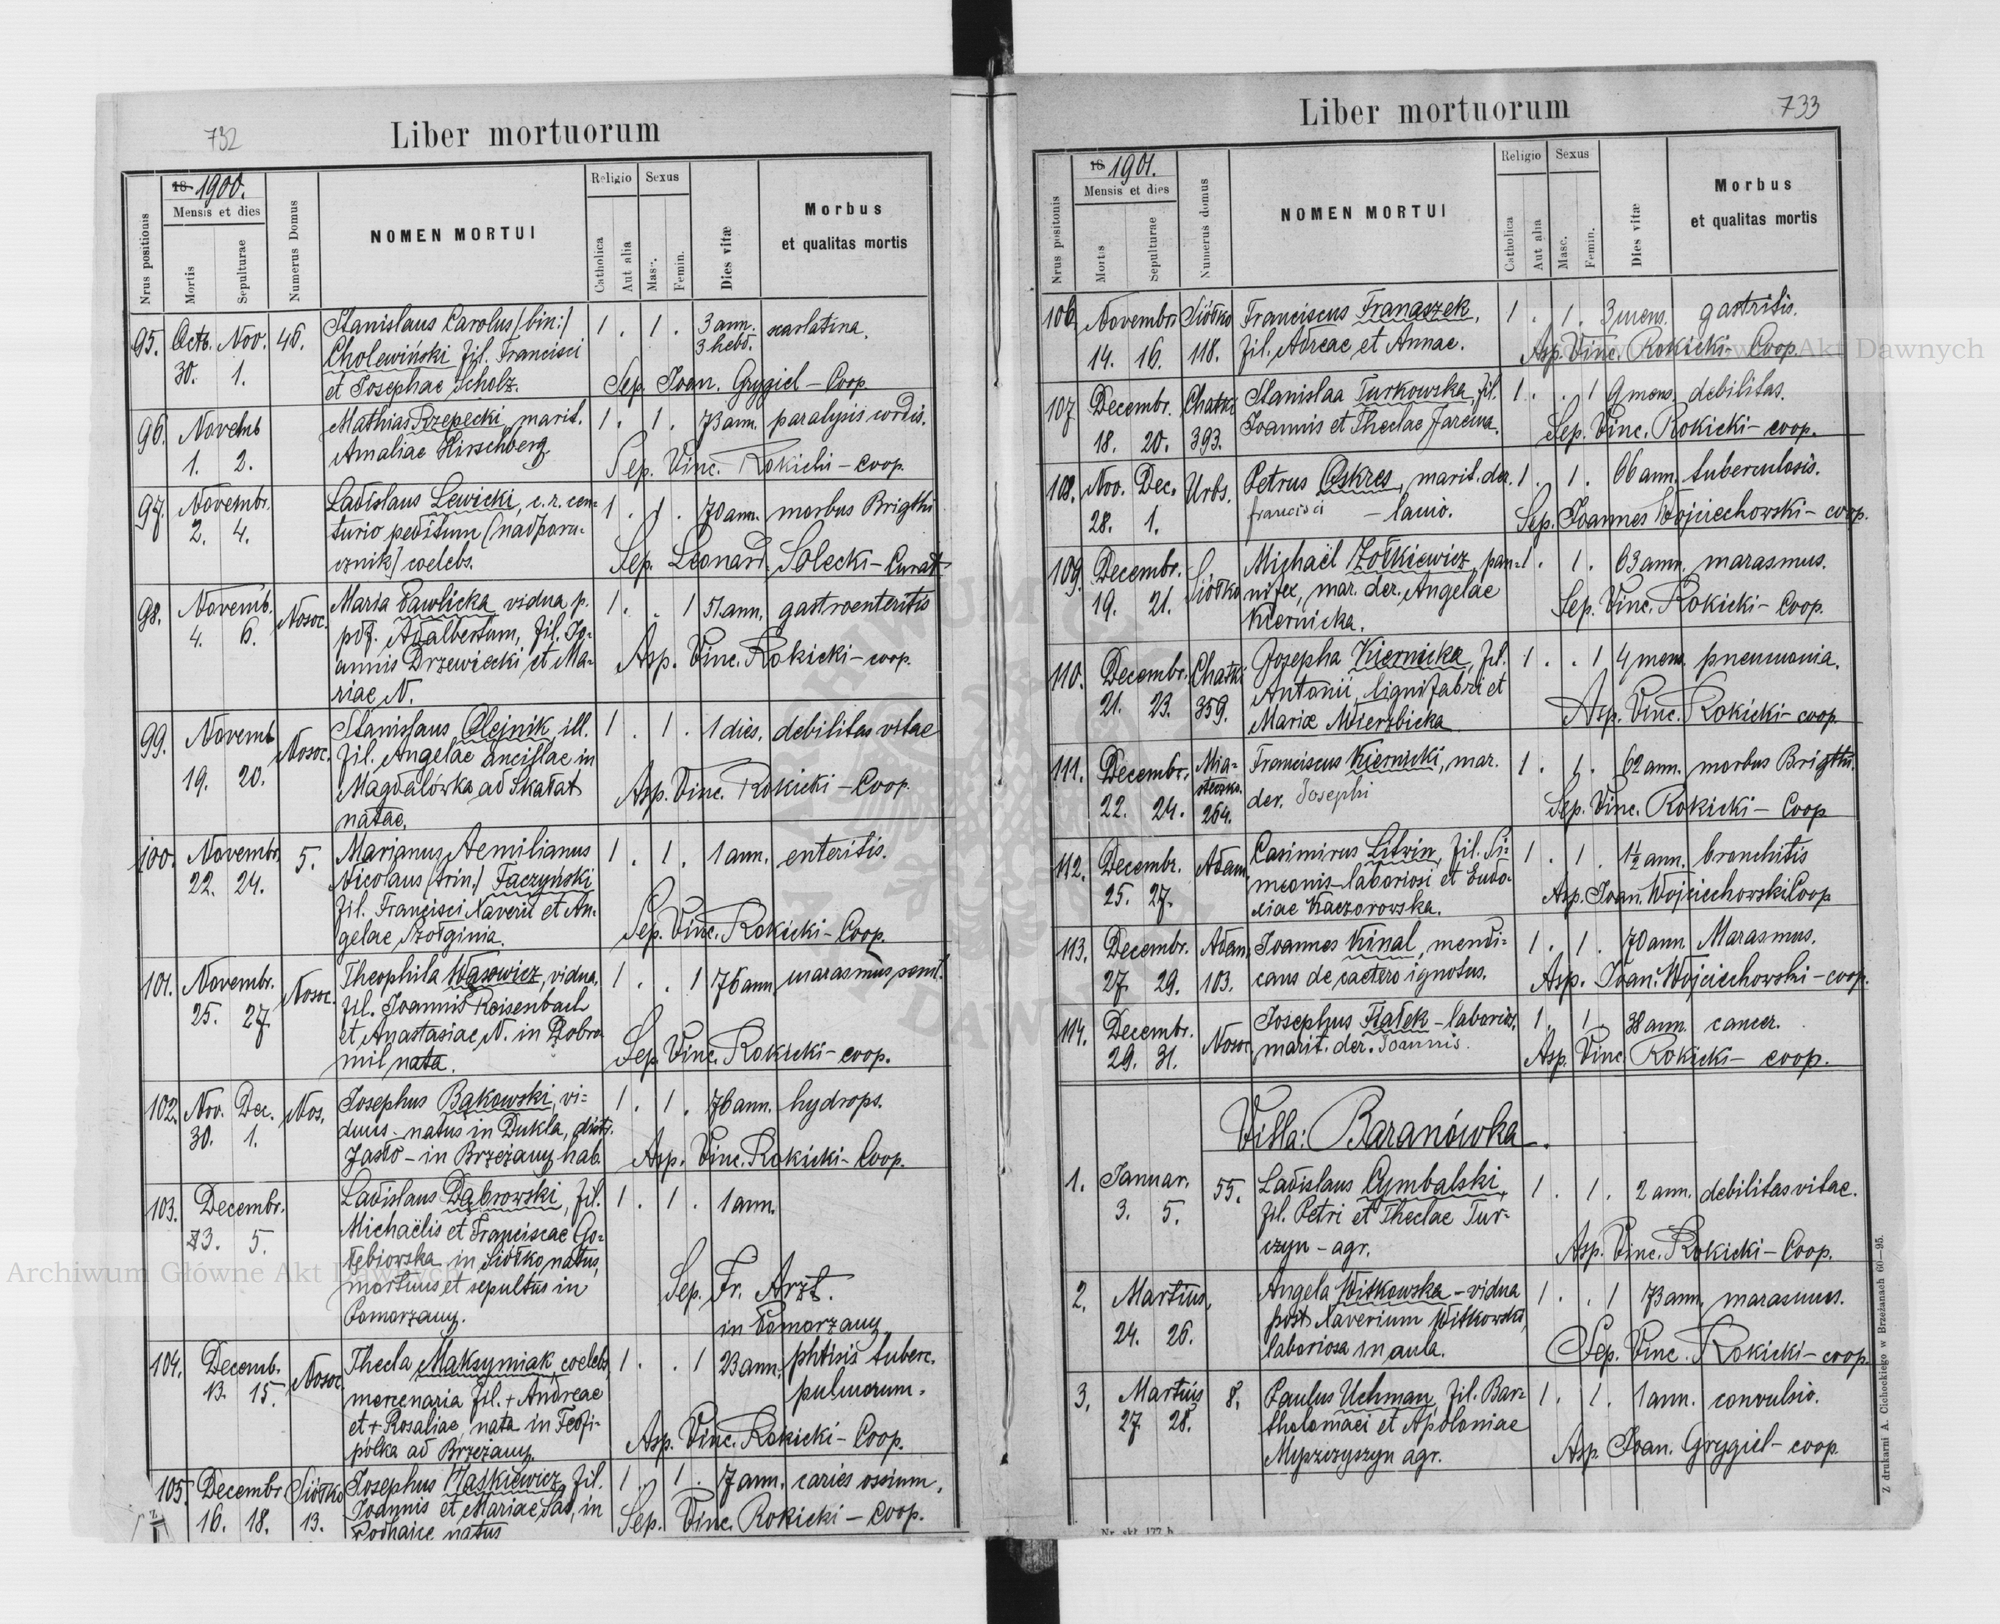 732
Liber mortuorum
Nrus positionis
18 1900.
Mensis et dies
Mortis
Sepulturae
Numerus Domus
NOMEN MORTUI
Religio
Catholica
Aut alia
Sexus
Masc.
Femin.
Dies vitæ
Morbus
et qualitas mortis
95. Octb. Nov. 46. Stanislaus Carolus (bin:) 1 . 1 . 3 ann. scarlatina.
30. 1. Cholewiński fil. Francisci 3 hebd.
et Josephae Scholz. Sep. Joan. Grygiel – Coop
96. Novemb Mathias Rzepecki, marit. 1 . 1 . 73 ann. paralysis cordis.
1. 2. Amaliae Hirschberg Sep. Vinc. Rokicki – Coop.
97. Novembr. Ladislaus Lewicki, c. r. cen- 1 . 1 . 70 ann. morbus Brigthi
2. 4. turio peditum (nadporu-
cznik) coelebs. Sep. Leonard. Solecki – Curat
98. Novemb. Nosoc. Maria Pawlicka vidua p. 1 . . 1 51 ann. gastroenteritis
4. 6. Adalbertum, fil. Jo-
annis Drzewiecki et Ma- Asp. Vinc. Rokicki – coop.
riae N.
99. Novemb Nosoc. Stanislaus Olejnik ill. 1 . 1 . 1 dies. debilitas vitae
19. 20. fil. Angelae ancillae in
Magdalówka ad Skałat Asp. Vinc. Rokicki – Coop.
natae.
100. Novembr. 5. Marianus Aemilianus 1 . 1 . 1 ann. enteritis.
22. 24. Nicolaus (trin.) Faczyński
fil. Francisci Xaverii et An-
gelae Szołginia. Sep. Vinc. Rokicki – Coop.
101. Novembr. Nosoc. Theophila Wąsowicz, vidua, 1 . . 1 76 ann. marasmus senil.
25. 27. fil. Joannis Reisenbach
et Anastasiae N. in Dobro Sep. Vinc. Rokicki – coop.
mil nata.
102. Nov. Dec. Nos. Josephus Bąkowski, vi- 1 . 1 . 76 ann. hydrops.
30. 1. duus natus in Dukla, distr.
Jasło – in Brzeżany hab. Asp. Vinc. Rokicki – Coop.
103. Decembr. Ladislaus Dąbrowski, fil. 1 . 1 . 1 ann.
3. 5. Michaëlis et Franciscae Go-
łębiowska in Siółko natus,
mortuus et sepultus in Sep. Fr. Arzt.
Pomorzany. in Pomorzany
104. Decemb. Nosoc. Thecla Maksymiak coelebs, 1 . . 1 23 ann. phtisis tuberc.
13. 15. mercenaria fil. + Andreae pulmorum.
et + Rosaliae, nata in Teofi-
polka ad Brzeżany. Asp. Vinc. Rokicki – Coop.
105. Decembr Siółko Josephus Maśkiewicz, fil. 1 . 1 . 7 ann. caries ossium.
16. 18. 13. Joannis et Mariae Sas, in Sep. Vinc. Rokicki – coop.
Podhajce natus
733
Liber mortuorum
Nrus positonis
18 1901.
Mensis et dies
Mortis
Sepulturae
Numerus domus
NOMEN MORTUI
Religio
Catholica
Aut alia
Sexus
Masc.
Femin.
Dies vitæ
Morbus
et qualitas mortis
106 Novembr. Siółko Franciscus Franaszek, 1 . 1 . 3 mens. gastritis.
14. 16. 118. fil. Adreae et Annae. Asp. Vinc. Rokicki – Coop.
107 Decembr. Chatki Stanislaa Turkowska, fil. 1 . . 1 9 mens. debilitas.
18. 20. 393. Joannis et Theclae Jarema. Sep. Vinc. Rokicki – coop.
108. Nov. Dec. Urbs. Petrus Oskres, marit. der. 1 . 1 . 66 ann. tuberculosis.
28. 1. francisci – lanio. Sep. Joannes Wojciechowski – coop.
109. Decembr. Siółko Michaël Żółkiewicz, pan- 1 . 1 . 63 ann. marasmus.
19. 21. nifex, mar. der. Angelae
Kiernicka. Sep. Vinc. Rokicki – Coop.
110. Decembr. Chatki Josepha Kiernicka, fil. 1 . . 1 4 mens. pneumonia.
21. 23. 359. Antonii, lignifabri et
Mariæ Wierzbicka Asp. Vinc. Rokicki – coop
111. Decembr. Mia- Franciscus Kiernicki, mar. 1 . 1 . 62 ann. morbus Brigthi.
22. 24. steczko. 264. der. Josephi Sep. Vinc. Rokicki – Coop
112. Decembr. Adam. Casimirus Litwin, fil. Si- 1 . 1 . 1½ ann. bronchitis
25. 27. meonis laboriosi et Eudo-
xiae Kaczorowska. Asp. Joan. Wojciechowski Coop
113. Decembr. Adam. Joannes Kinal, mendi- 1 . 1 . 70 ann. Marasmus.
27. 29. 103. cans de caetero ignotus. Asp. Joan. Wojciechowski – coop.
114. Decembr. Nosoc Josephus Fiałek – laborios. 1 . 1 . 38 ann. cancer.
29. 31. marit. der. Joannis. Asp. Vinc Rokicki – coop.
Villa: Baranówka.
1. Januar. 55. Ladislaus Cymbalski, 1 . 1 . 2 ann. debilitas vitae.
3. 5. fil. Petri et Theclae Tur-
czyn – agr. Asp. Vinc. Rokicki – Coop.
2. Martius, Angela Witkowska – vidua 1 . . 1 73 ann. marasmus.
24. 26. post Xaverium Witkowski,
laboriosa in aula. Sep. Vinc. Rokicki – coop.
3. Martius 8. Paulus Uchman, fil. Bar- 1 . 1 . 1 ann. convulsio.
27 28. tholomaei et Apoloniae
agr. Asp. Joan. Grygiel – coop.
Z drukarni A. Cichockiego w Brzeżanach 60–95.
Nr. skł. 177 b
Archiwum Główne Akt Dawnych